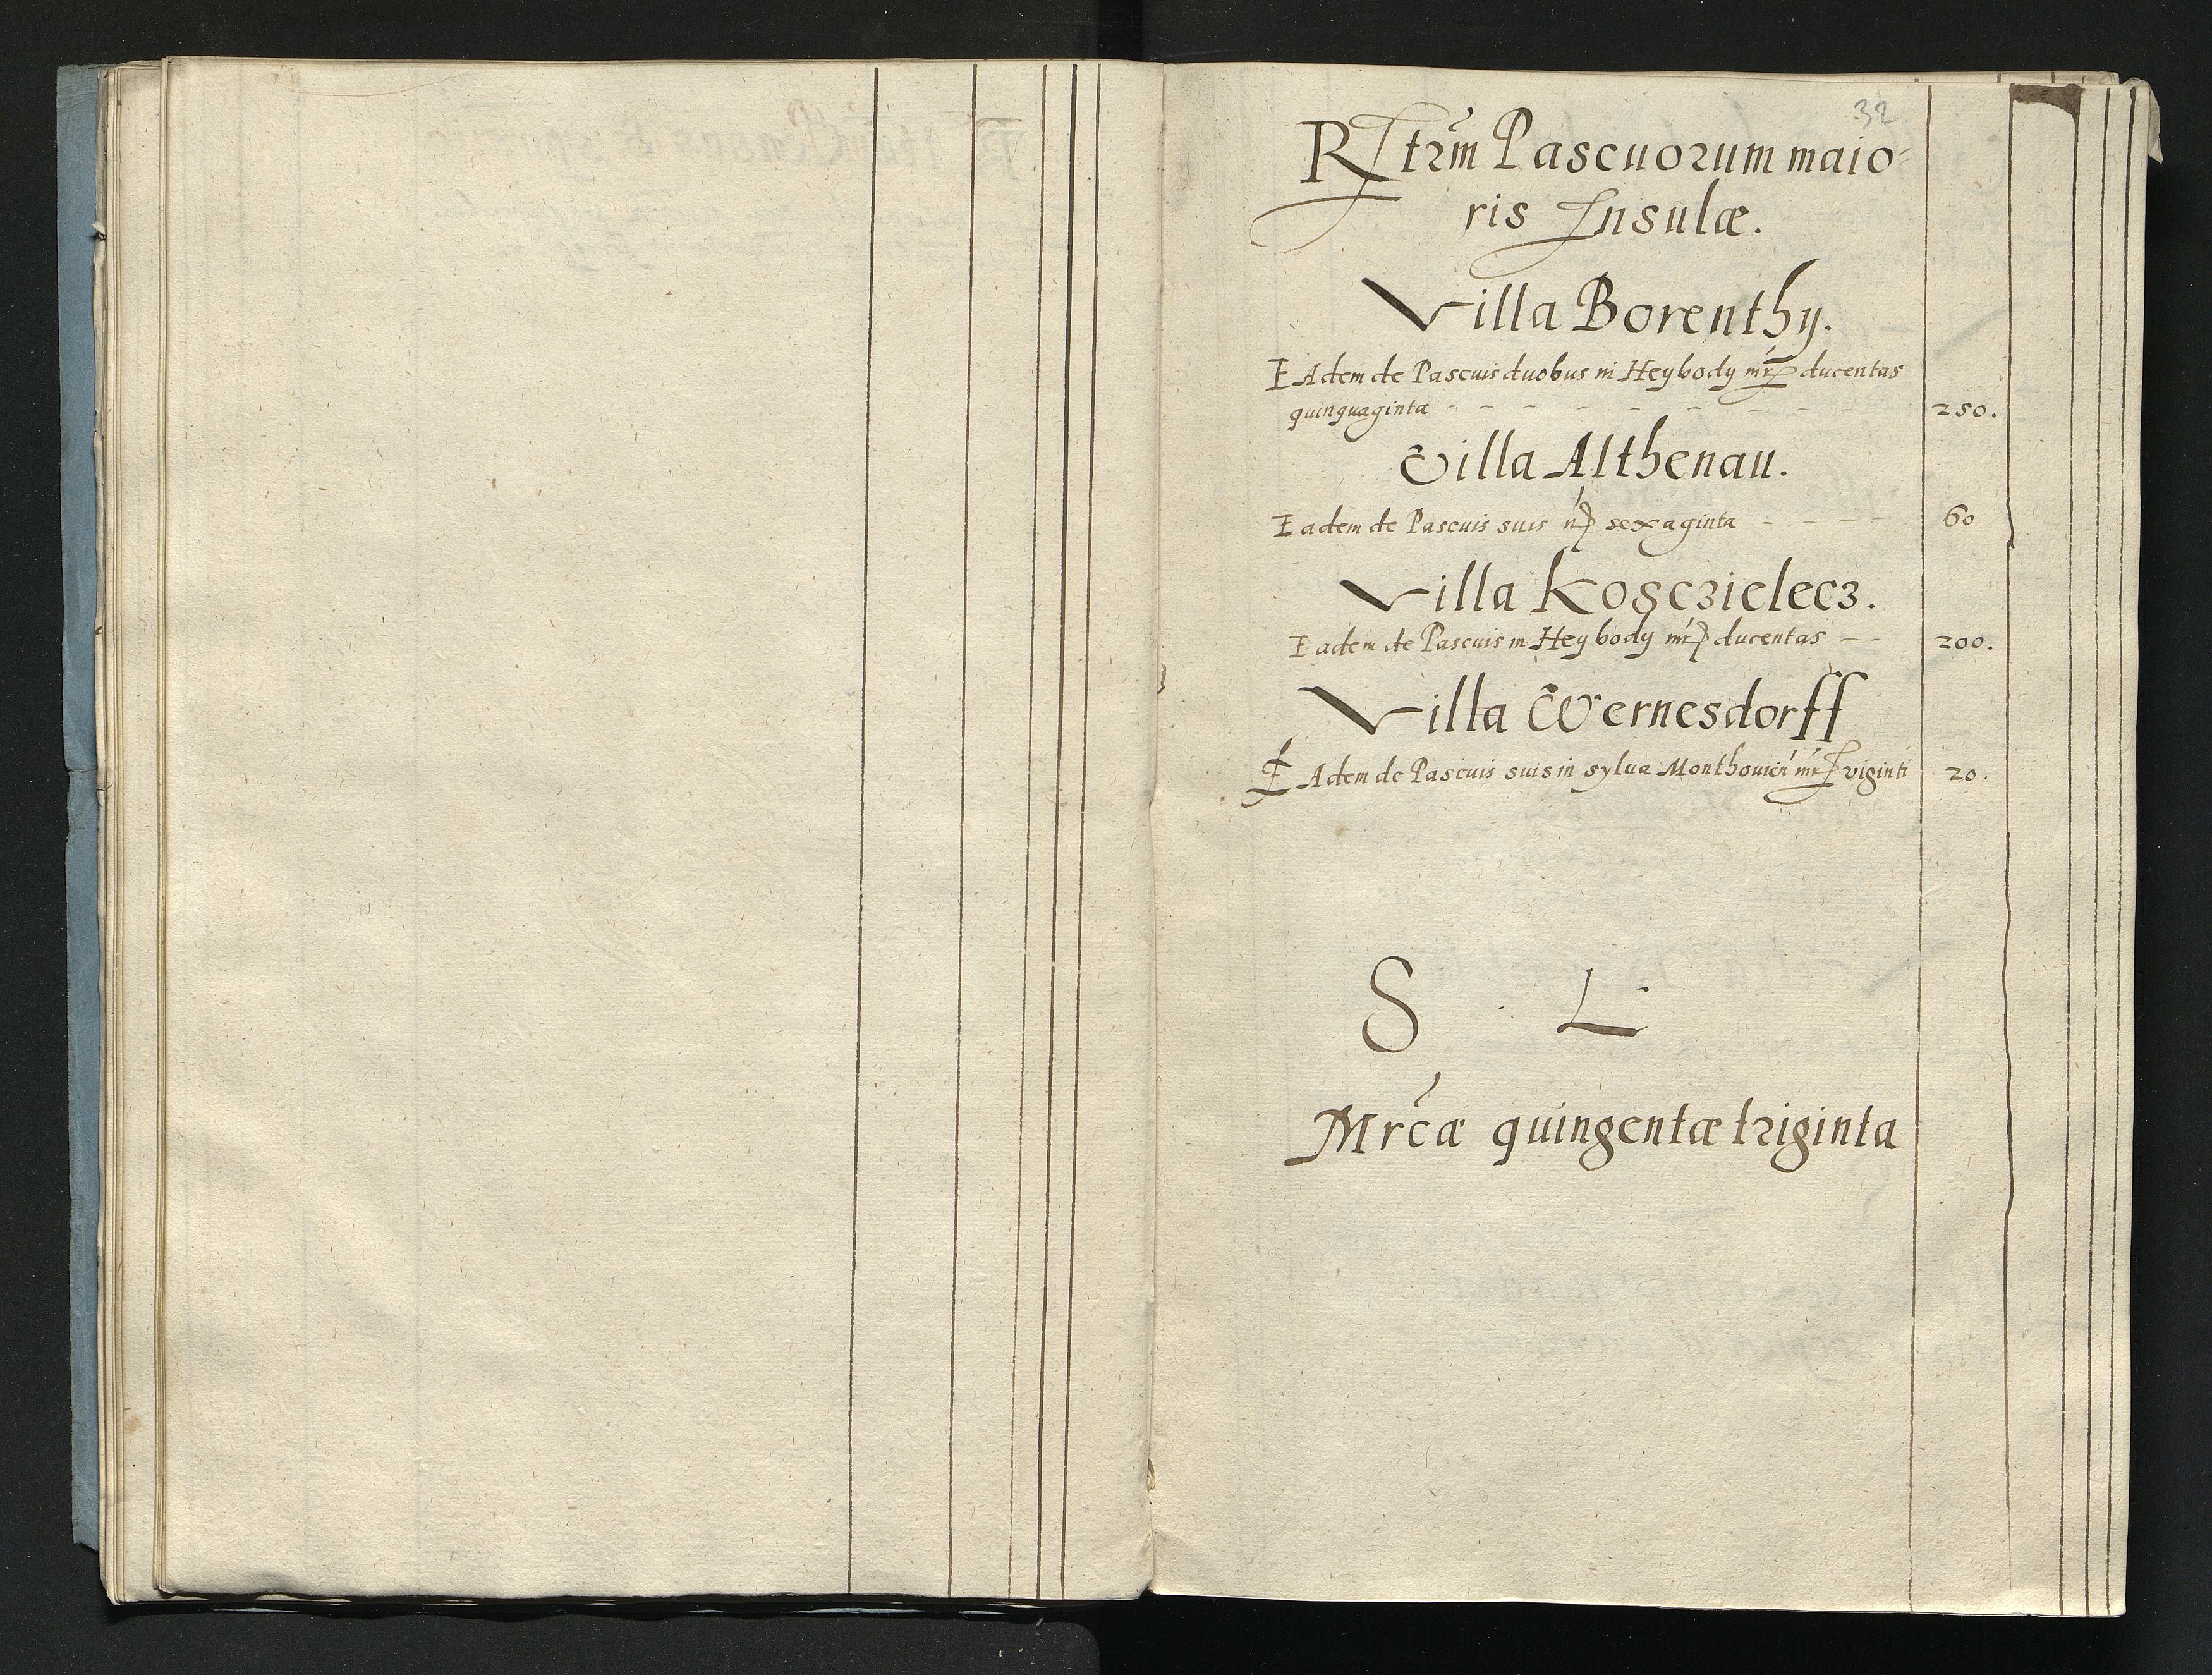 32
Rſtrm̄ Pascuorum maio=
ris Insulæ.
Villa Borenthy.
EAdem de Pascuis duobus in Heybody mr̄ ducentas
quinquaginta - - - - - - - - 250.
Villa Althenau.
Eadem de Pascuis suis sexaginta - - - - 60
Villa Kosczielecz.
Eadem de Pascuis in Heybody mr̄ ducentas - - 200.
Villa Wernesdorff
EAdem de Pascuis suis in sylua Monthouien mr̄ viginti 20.
S L
Mrcæ quingentæ triginta